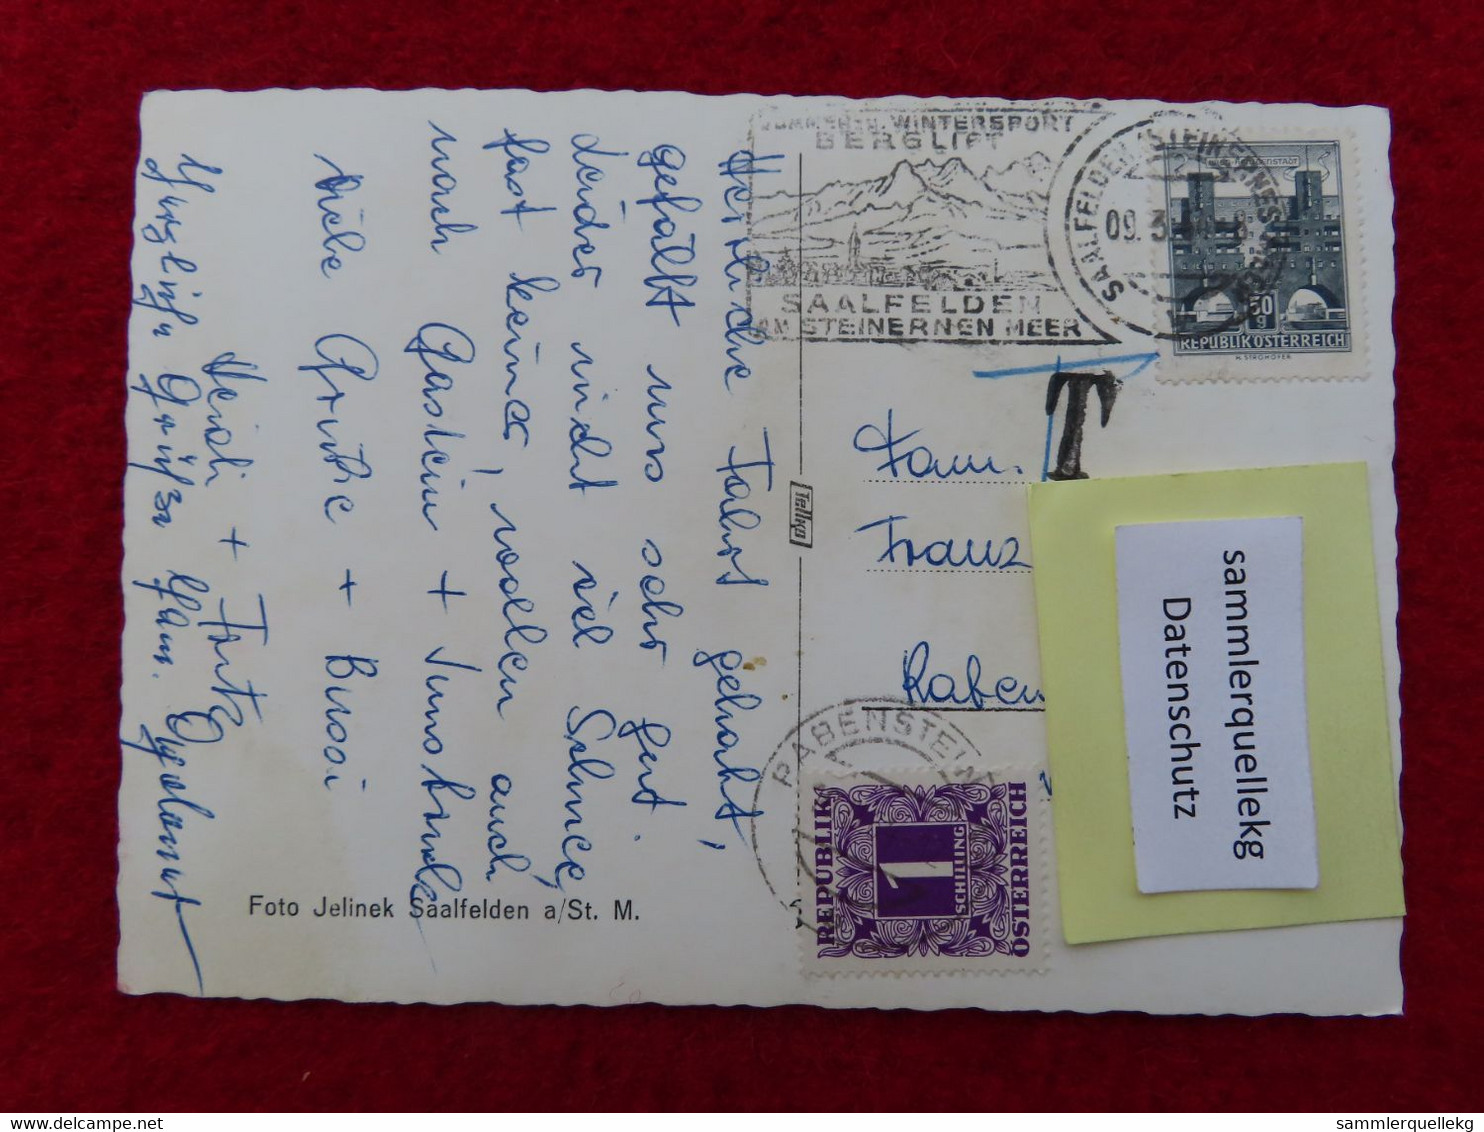 Herrliche Fahrt gehabt,
gefällt uns sehr gut.
Leider nicht viel Schnee,
fast keiner, wollen auch
nach Gastein +
Viele Grüße + Bussi
Heidi + Fritz
Grüße Fam.
Foto Jelinek Saalfelden a/St. M.
Tellko
SOMMER- U. WINTERSPORT
BERGLIFT
SAALFELDEN
AM STEINERNEN MEER
SAALFELDEN STEINERNES MEER
09. 3.
50
g
REPUBLIK ÖSTERREICH
H. STROHOFER
T
Fam.
Franz
Raben
RABENSTEIN
REPUBLIK
1
SCHILLING
ÖSTERREICH
sammlerquellekg
Datenschutz
delcampe.net
sammlerquellekg